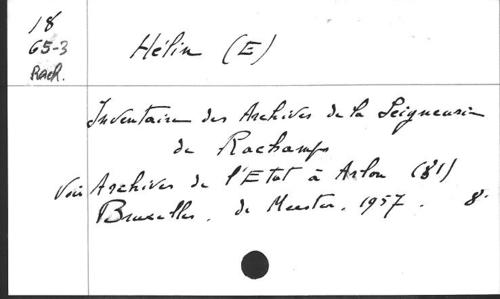 18
G5-3
Rach.
Hélin (E)
Inventaire des Archives de la Seigneurie
de Rachamps
Voir Archives de l'Etat à Arlon (81)
Bruxelles. de Meester. 1957. 8°